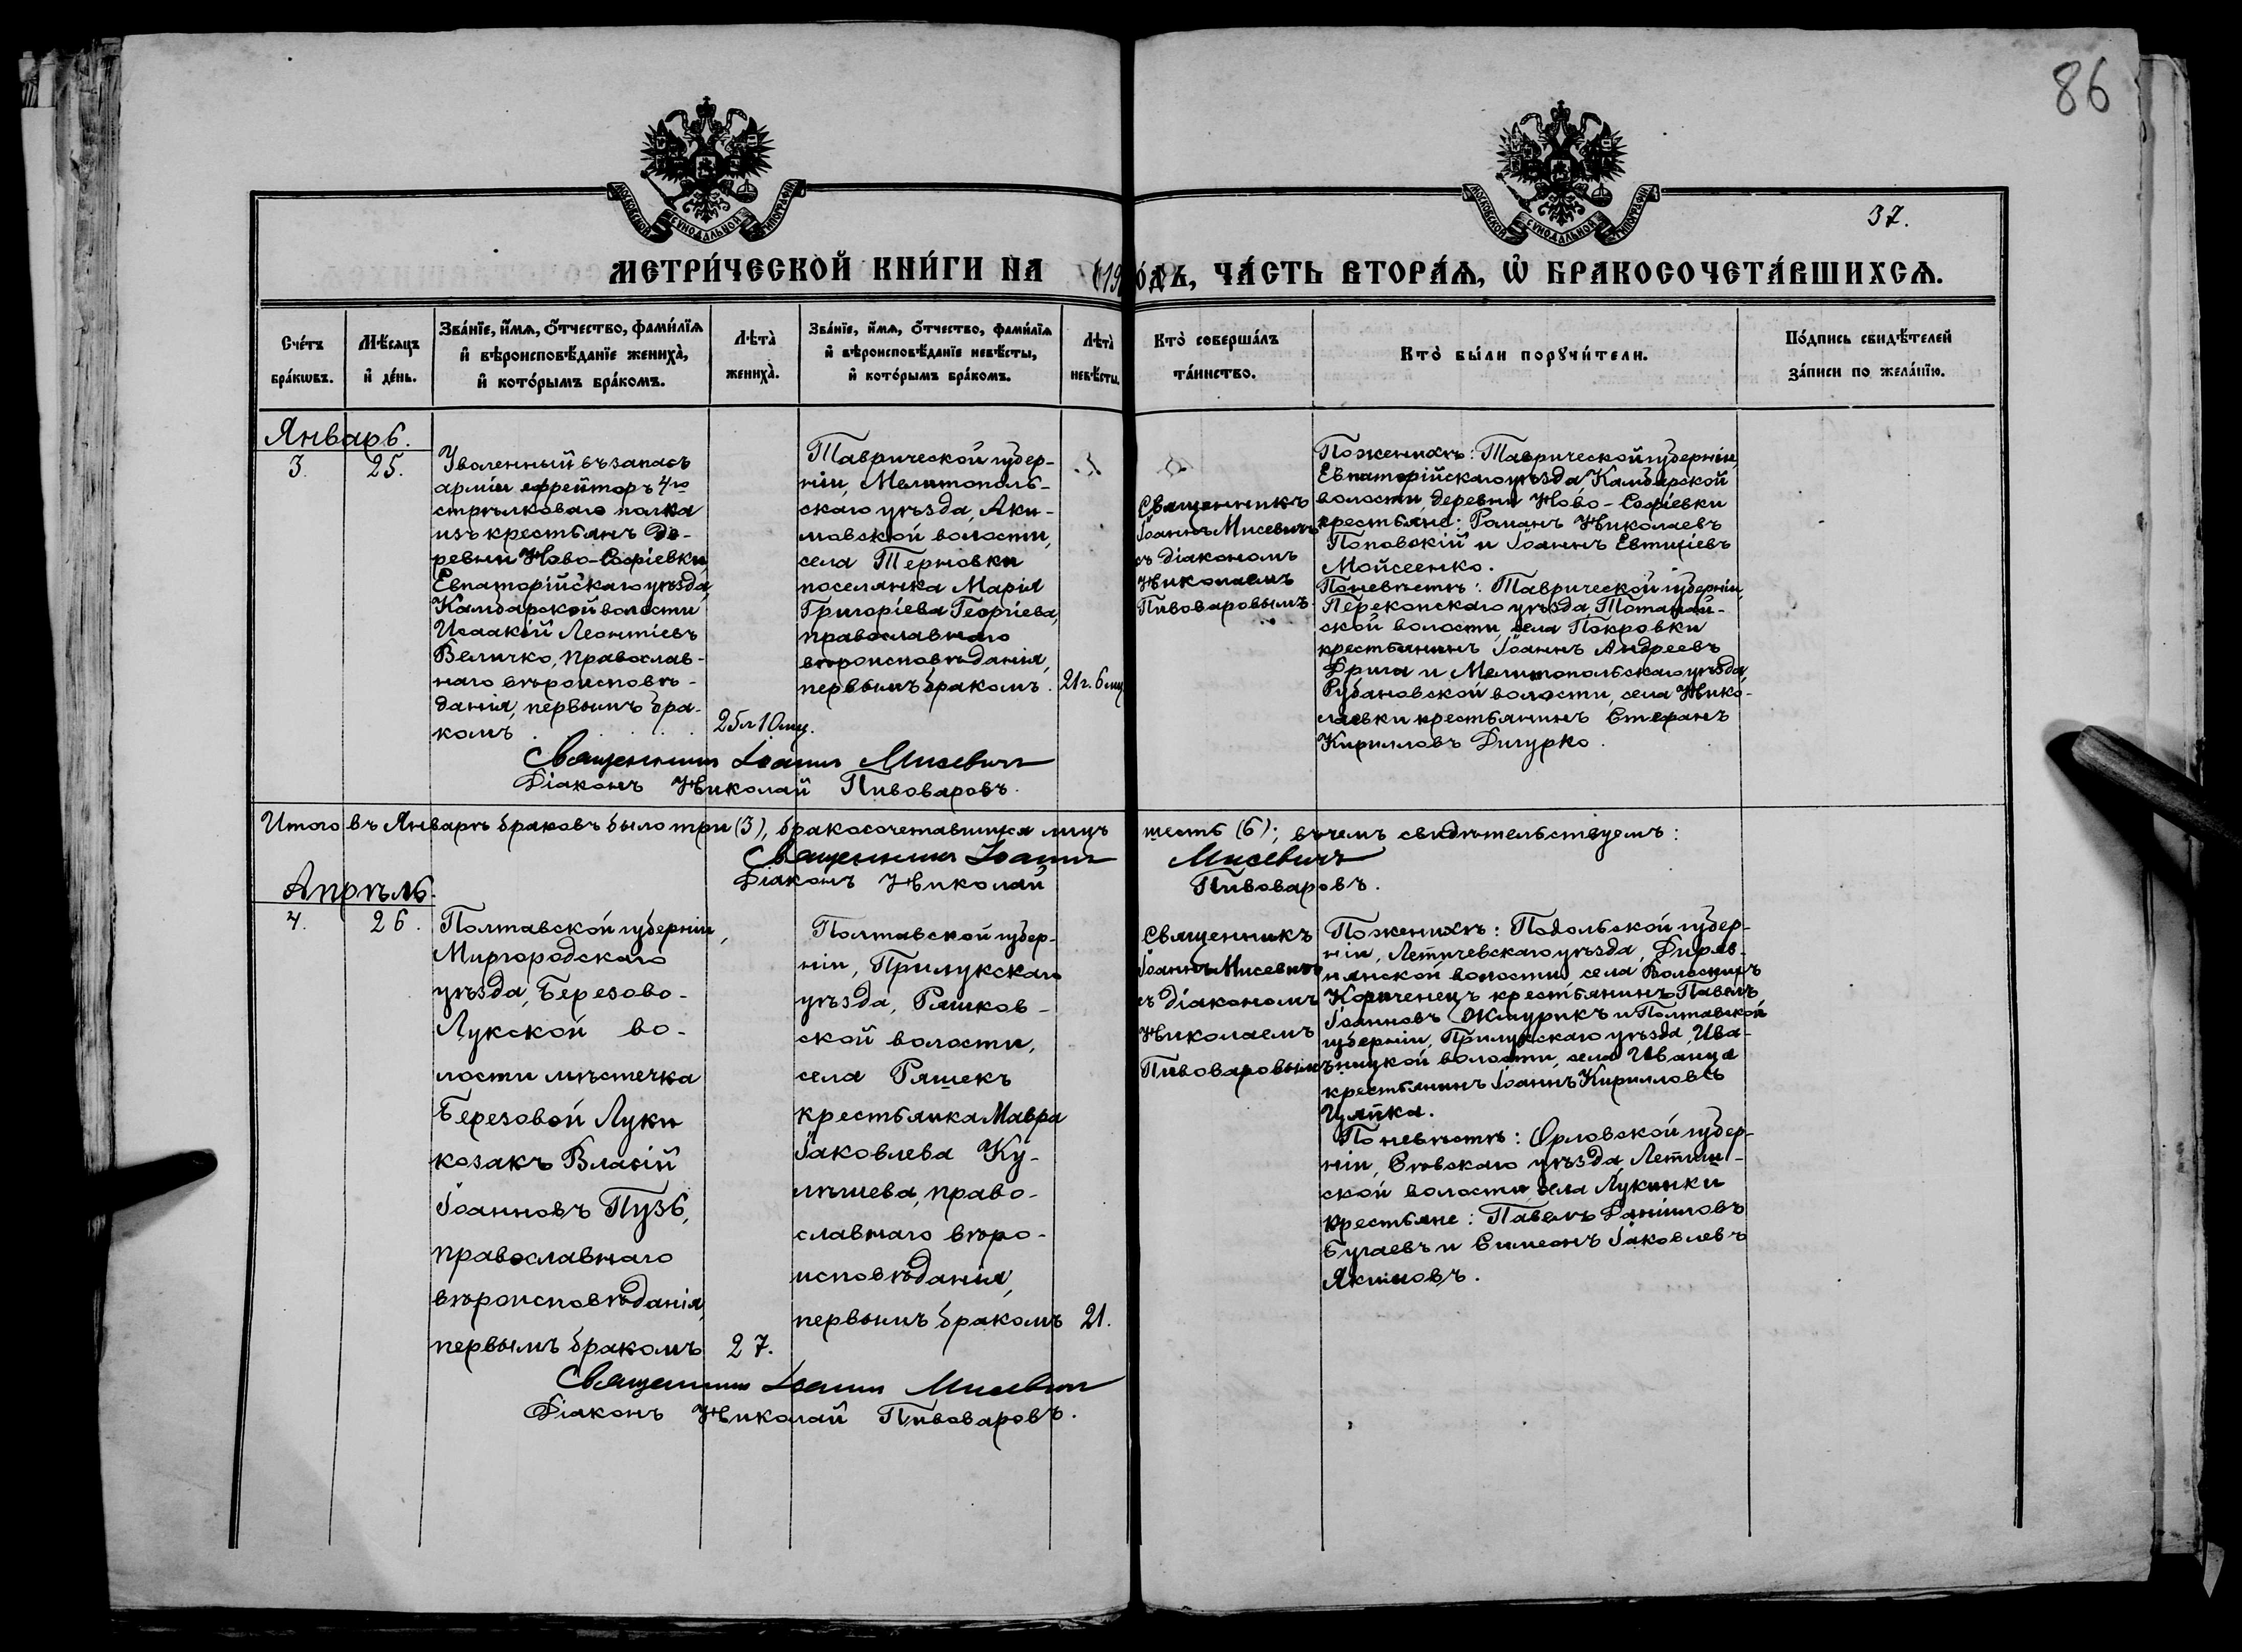 86
37.
МОСКОВСКОЙ СУНОДАЛЬНОЙ ТИПОГРАФИИ
МОСКОВСКОЙ СУНОДАЛЬНОЙ ТИПОГРАФИИ
МЕТРИ́ЧЕСКОЙ КНИ́ГИ НА 19 ГО́ДЪ, ЧА́СТЬ ВТОРА́Ѧ, Ѽ БРАКОСОЧЕТА́ВШИХСѦ.
Сче́тъ
бра́кѡвъ.
Мѣ́сяцъ
и҆ де́нь.
Зва́нїе, и҆́мѧ, ѻ҆́тчество, фами́лїѧ
и҆ вѣроисповѣ́данїе жениха̀,
и҆ кото́рымъ бра́комъ.
Лѣта̀
жениха̀.
Зва́нїе, и҆́мѧ, ѻ҆́тчество, фами́лїѧ
и҆ вѣроисповѣ́данїе невѣ́сты,
и҆ кото́рымъ бра́комъ.
Лѣта̀
невѣ́сты.
Кто̀ соверша́лъ
та́инство.
Кто̀ бы́ли порꙋчи́тели.
По́дпись свидѣ́телей
за́писи по жела́нїю.
Январь.
3.
25.
Уволенный въ запасъ
арміи ефрейторъ 4го
стрѣлковаго полка
изъ крестьянъ де-
ревни Ново-Софіевки,
Евпаторійскаго уѣзда,
Камбарской волости
Исаакій Леонтіевъ
Величко, православ-
наго вѣроисповѣ-
данія, первымъ бра-
комъ . . . .
25 л 10 мц.
Таврической губер-
ніи, Мелитополь-
скаго уѣзда, Аки-
мовской волости,
села Терновки
поселянка Марія
Григоріева Георгіева,
православнаго
вѣроисповѣданія,
первымъ бракомъ.
21 г. 6 мц
Священникъ
Іоаннъ Мисевичъ
съ діакономъ
Николаемъ
Пивоваровымъ
По женихѣ: Таврической губерніи,
Евпаторійскаго уѣзда, Камбарской
волости, деревни Ново-Софіевки
крестьяне: Романъ Николаевъ
Поповскій и Іоаннъ Евтихіевъ
Мойсеенко.
По невѣстѣ: Таврической губерніи,
Перекопскаго уѣзда, Тотанай-
ской волости, села Покровки
крестьянинъ Іоаннъ Андреевъ
Дрига и Мелитопольскаго уѣзда,
Рубановской волости, села Нико-
лаевки крестьянинъ Стефанъ
Кирилловъ Дигурко.
Священникъ Іоаннъ Мисевичъ
Діаконъ Николай Пивоваровъ.
Итого въ Январѣ браковъ было три (3), бракосочетавшихся лицъ шесть (6); въ чемъ свидѣтельствуемъ:
Священникъ Іоаннъ Мисевичъ
Діаконъ Николай Пивоваровъ.
Апрѣль.
4.
26.
Полтавской губерніи,
Миргородскаго
уѣзда, Березово-
Лукской во-
лости мѣстечка
Березовой Луки
козакъ Власій
Іоанновъ Пузь,
православнаго
вѣроисповѣданія,
первымъ бракомъ
27.
Полтавской губер-
ніи, Прилукскаго
уѣзда, Ряшков-
ской волости,
села Ряшекъ
крестьянка Мавра
Іаковлева Ку-
лѣшева, право-
славнаго вѣро-
исповѣданія,
первымъ бракомъ
21.
Священникъ
Іоаннъ Мисевичъ
съ діакономъ
Николаемъ
Пивоваровымъ
По женихѣ: Подольской губер-
ніи, Летичевскаго уѣзда,
волости села Волоскихъ
крестьянинъ Павелъ
Іоанновъ Жмурикъ и Полтавской
губерніи, Прилукскаго уѣзда, Ива-
ницкой волости, села Иваница
крестьянинъ Іоаннъ Кирилловъ
Цуяйка.
По невѣстѣ: Орловской губер-
ніи, Сѣвскаго уѣзда,
ской волости села Лукинки
крестьяне: Павелъ Даніиловъ
Бугаевъ и Симеонъ Іаковлевъ
Якимовъ.
Священникъ Іоаннъ Мисевичъ
Діаконъ Николай Пивоваровъ.